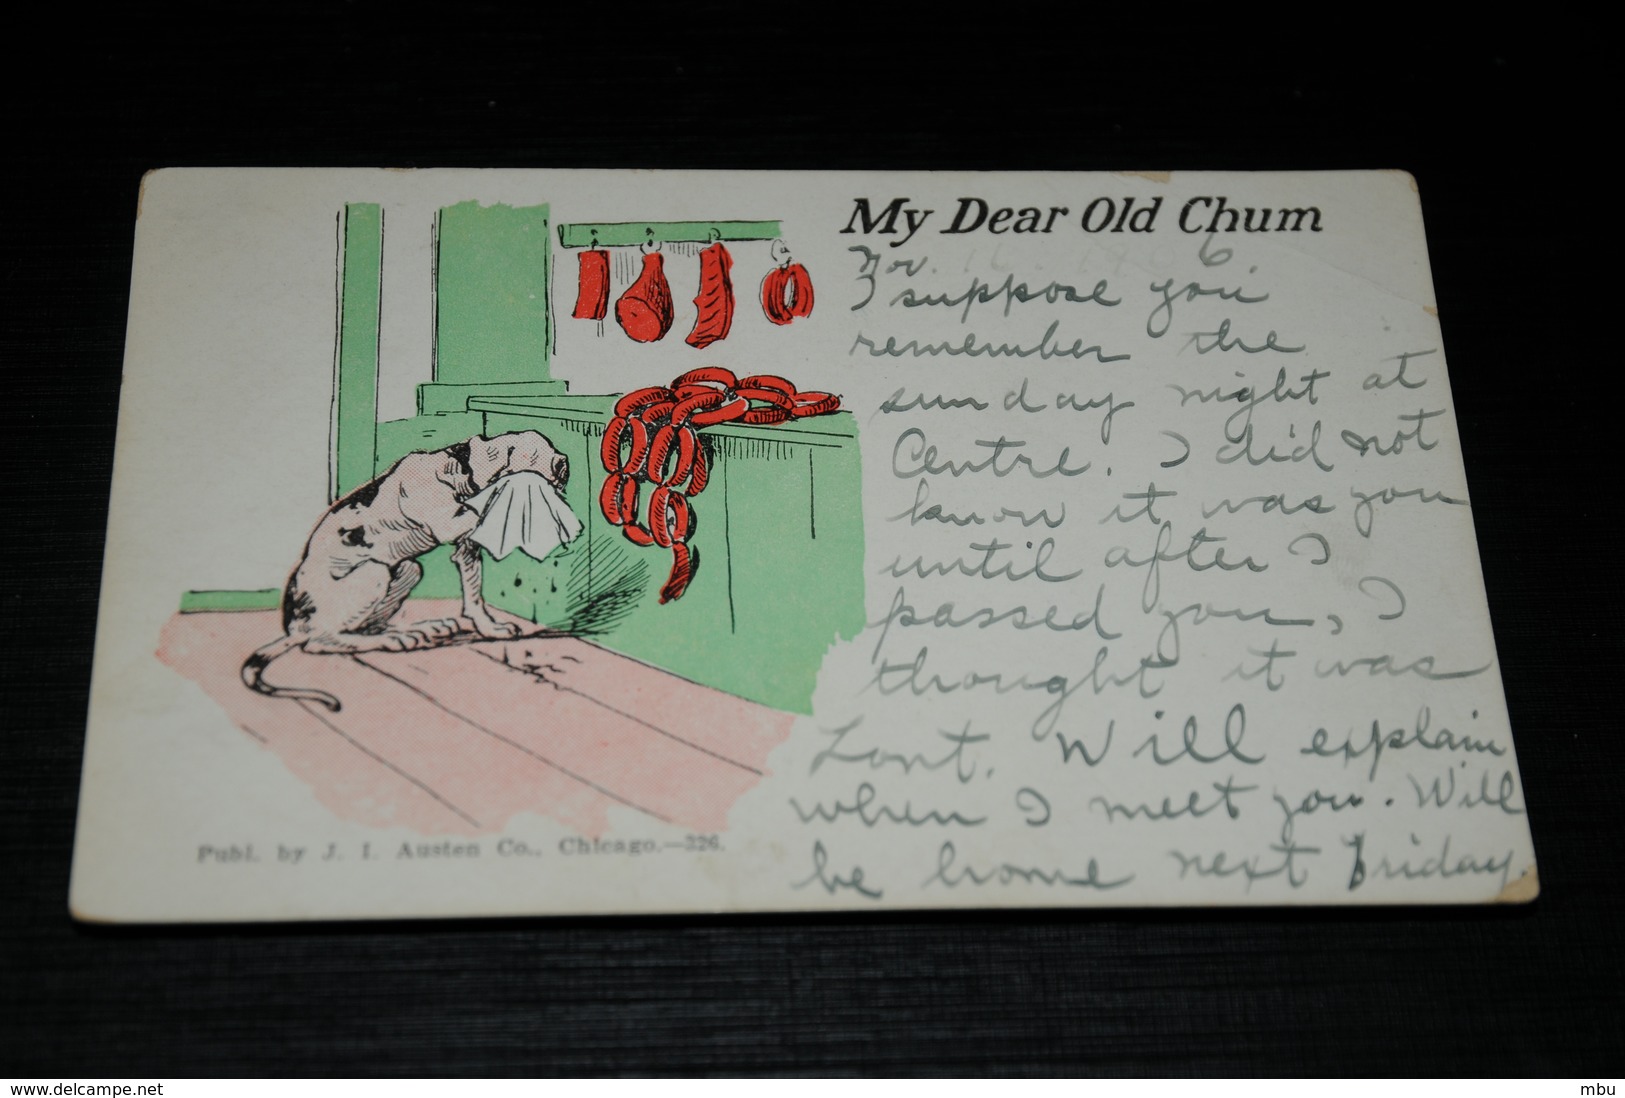 My Dear Old Chum
Nov. 16 1906
I suppose you
remember the
sunday night at
Centre. I did not
know it was you
until after I
passed you, I
thought it was
Lont. Will explain
when I meet you. Will
be home next Friday.
Publ. by J. I. Austen Co., Chicago.—326.
delcampe.net
mbu